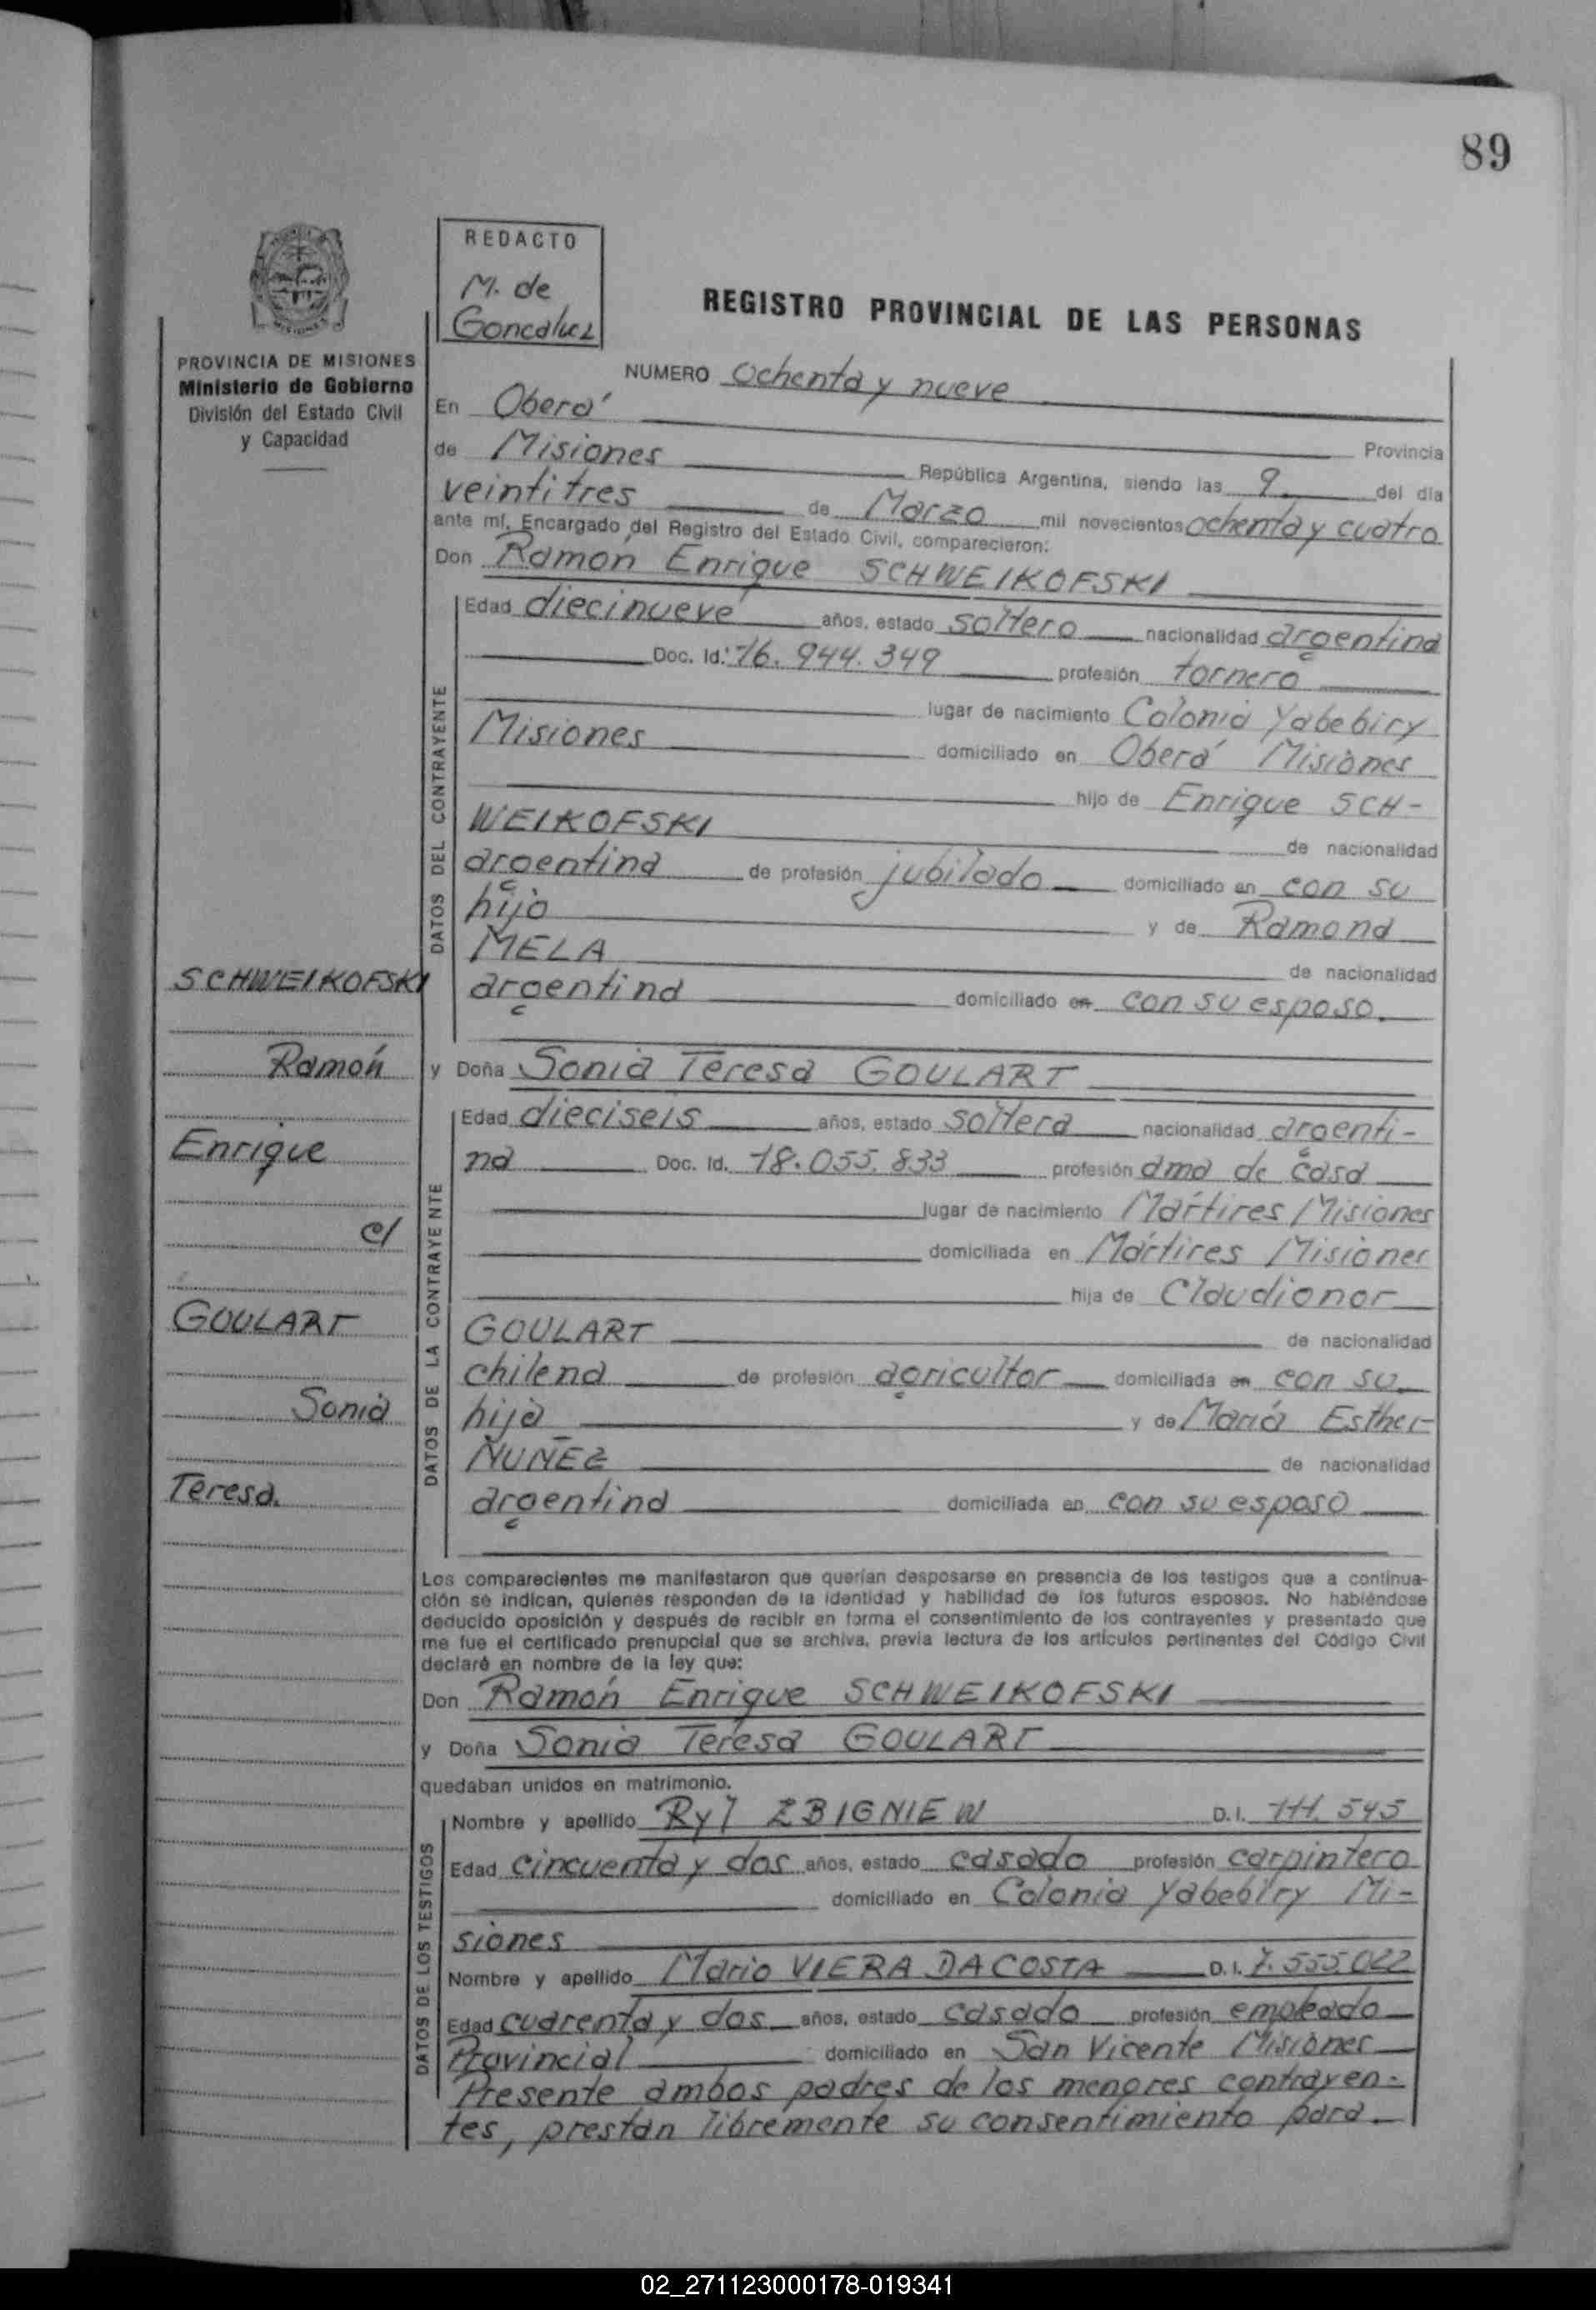 89
REDACTO
M. de
Goncalvez
REGISTRO PROVINCIAL DE LAS PERSONAS
PROVINCIA DE MISIONES
Ministerio de Gobierno
División del Estado Civil
y Capacidad
NUMERO Ochenta y nueve
En Oberá
Provincia
de Misiones República Argentina, siendo las 9 del día
veintitres de Marzo mil novecientos ochenta y cuatro
ante mí, Encargado del Registro del Estado Civil, comparecieron:
Don Ramón Enrique SCHWEIKOFSKI
DATOS DEL CONTRAYENTE
Edad diecinueve años, estado soltero nacionalidad argentina
Doc. Id. 16.944.349 profesión tornero
lugar de nacimiento Colonia Yabebiry
Misiones domiciliado en Oberá Misiones
hijo de Enrique SCH-
WEIKOFSKI de nacionalidad
argentina de profesión jubilado domiciliado en con su
hijo y de Ramona
MELA de nacionalidad
argentina domiciliado en con su esposo.
y Doña Sonia Teresa GOULART
DATOS DE LA CONTRAYENTE
Edad dieciseis años, estado soltera nacionalidad argenti-
na Doc. Id. 18.055.833 profesión ama de casa
lugar de nacimiento Mártires Misiones
domiciliada en Mártires Misiones
hija de Claudionor
GOULART de nacionalidad
chilena de profesión agricultor domiciliada en con su
hija y de María Esther
NUÑEZ de nacionalidad
argentina domiciliada en con su esposo
SCHWEIKOFSKI
Ramón
Enrique
c/
GOULART
Sonia
Teresa.
Los comparecientes me manifestaron que querían desposarse en presencia de los testigos que a continua-
ción se indican, quienes responden de la identidad y habilidad de los futuros esposos. No habiéndose
deducido oposición y después de recibir en forma el consentimiento de los contrayentes y presentado que
me fue el certificado prenupcial que se archiva, previa lectura de los artículos pertinentes del Código Civil
declaré en nombre de la ley que:
Don Ramón Enrique SCHWEIKOFSKI
y Doña Sonia Teresa GOULART
quedaban unidos en matrimonio.
DATOS DE LOS TESTIGOS
Nombre y apellido Ryl ZBIGNIEW D.I. 111.545
Edad cincuenta y dos años, estado casado profesión carpintero
domiciliado en Colonia Yabebiry Mi-
siones
Nombre y apellido Mario VIERA DACOSTA D.I. 7.555.022
Edad cuarenta y dos años, estado casado profesión empleado
Provincial domiciliado en San Vicente Misiones
Presente ambos padres de los menores contrayen-
tes, prestan libremente su consentimiento para
02_271123000178-019341